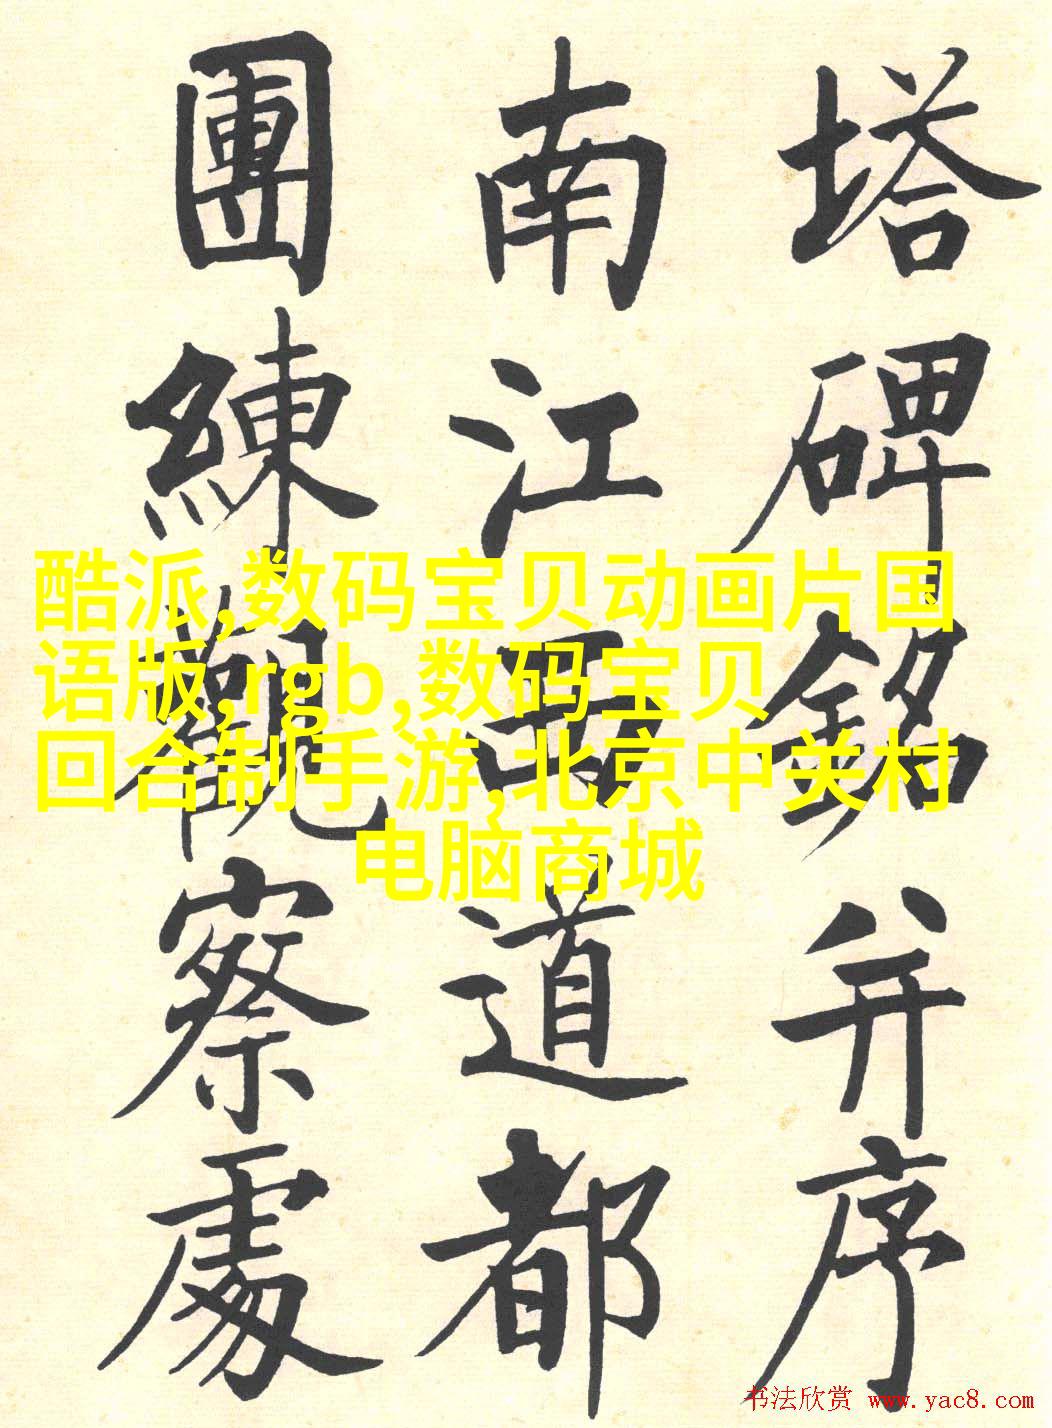 塔碑銘并序
南江西道都
團練觀察處
酷派,数码宝贝动画片国
语版,rgb,数码宝贝
回合制手游,北京中关村
电脑商城
书法欣赏 www.yac8.com